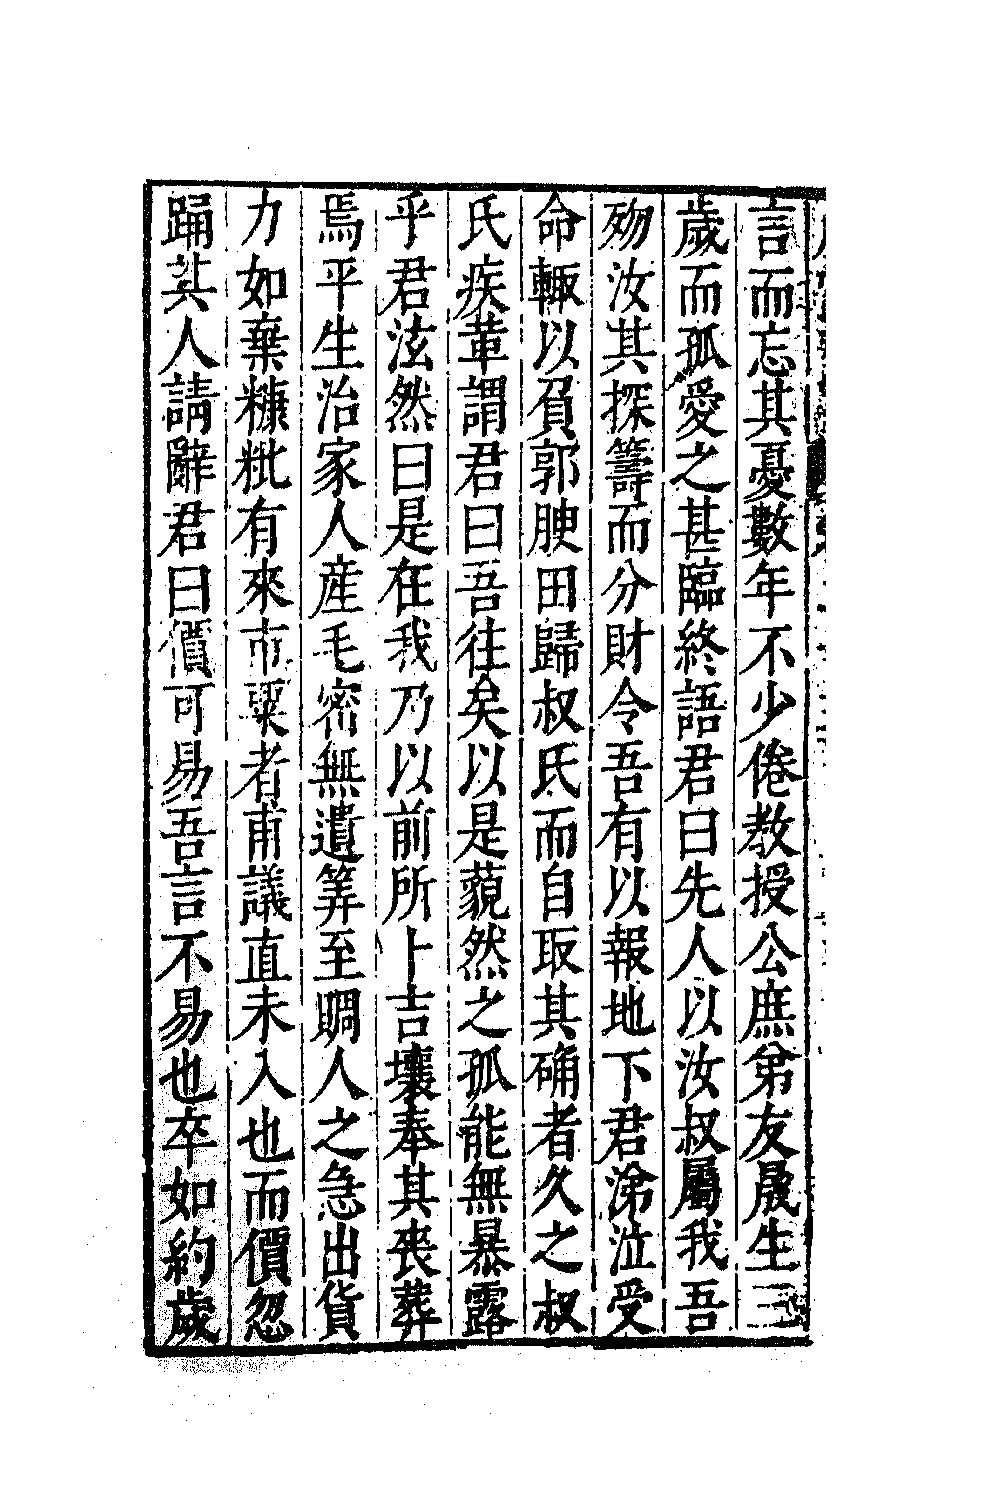 言而忘其憂數年不少倦教授公庶弟友晟生三
歲而孤愛之甚臨終語君曰先人以汝叔屬我吾
歾汝其探籌而分財令吾有以報地下君涕泣受
命輙以負郭腴田歸叔氏而自取其确者久之叔
氏疾革謂君曰吾往矣以是藐然之孤能無暴露
乎君泫然曰是在我乃以前所卜吉壤奉其喪葬
焉平生治家人産毛密無遺筭至賙人之急出貨
力如棄糠粃有來市粟者甫議直未入也而價忽
踊其人請辭君曰價可易吾言不易也卒如約歲